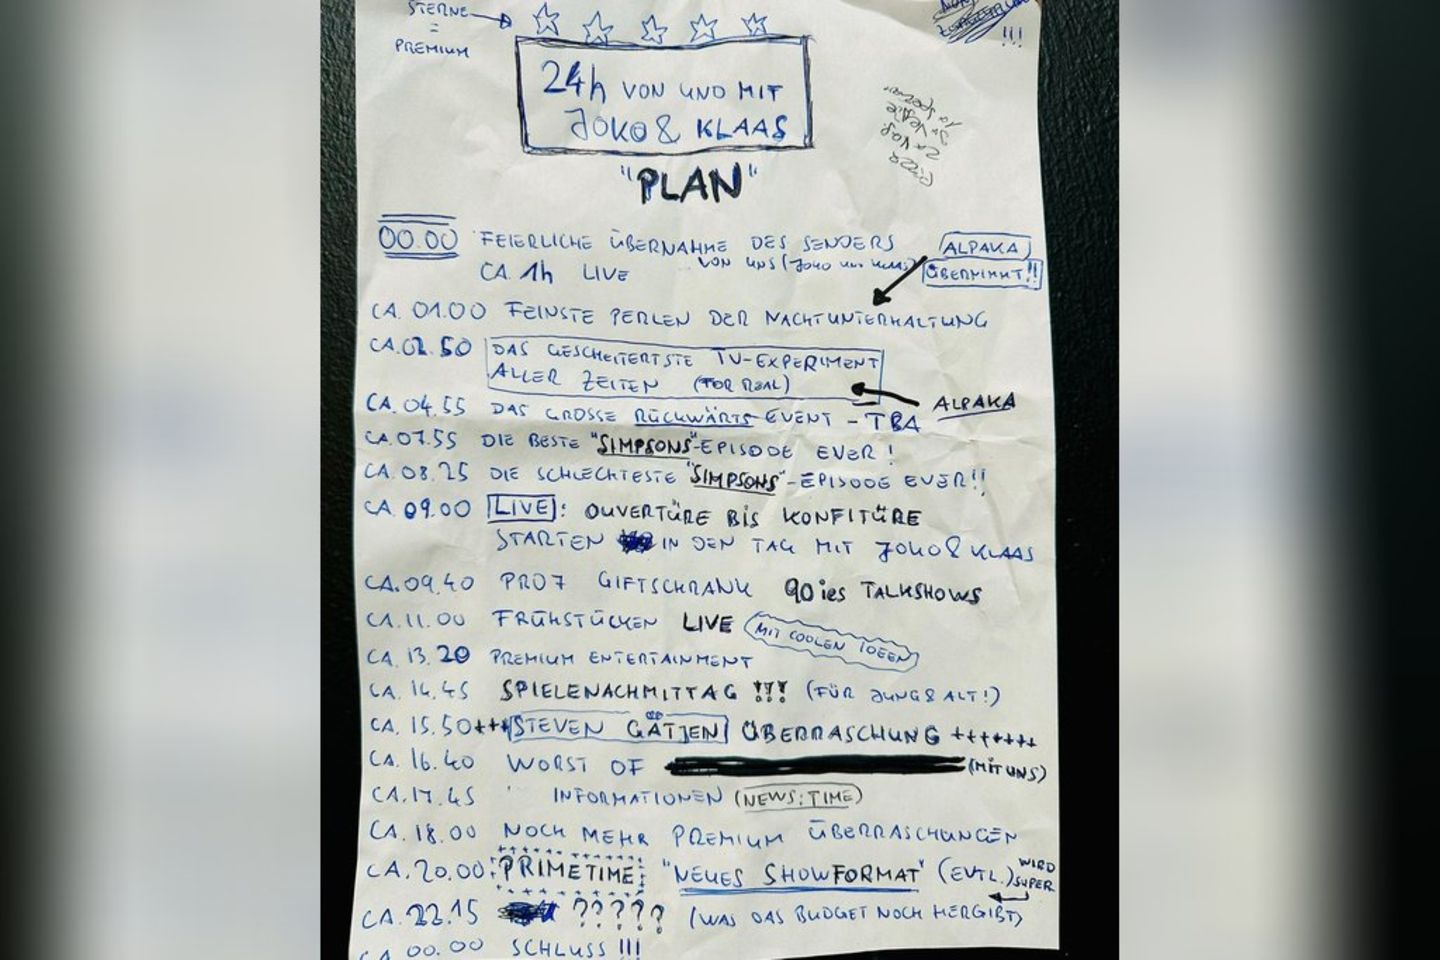 STERNE
=
PREMIUM
!!!
24h VON UND MIT
JOKO & KLAAS
"PLAN"
00.00 FEIERLICHE ÜBERNAHME DES SENDERS
VON UNS (JOKO UND KLAAS)
CA. 1h LIVE
ALPAKA
ÜBERNIMMT!!
CA. 01.00 FEINSTE PERLEN DER NACHTUNTERHALTUNG
CA. 02.50 DAS GESCHEITERTSTE TV-EXPERIMENT
ALLER ZEITEN (FOR REAL)
ALPAKA
CA. 04.55 DAS GROSSE RÜCKWÄRTS-EVENT - TBA
CA. 07.55 DIE BESTE "SIMPSONS"-EPISODE EVER!
CA. 08.25 DIE SCHLECHTESTE "SIMPSONS"-EPISODE EVER!!
CA. 09.00 LIVE: OUVERTÜRE BIS KONFITÜRE
STARTEN IN DEN TAG MIT JOKO & KLAAS
CA. 09.40 PRO7 GIFTSCHRANK 90ies TALKSHOWS
CA. 11.00 FRÜHSTÜCKEN LIVE (MIT COOLEN IDEEN)
CA. 13.20 PREMIUM ENTERTAINMENT
CA. 14.45 SPIELENACHMITTAG !!! (FÜR JUNG & ALT!)
CA. 15.50 +++ STEVEN GÄTJEN ÜBERRASCHUNG +++++++
CA. 16.40 WORST OF (MIT UNS)
CA. 17.45 INFORMATIONEN (NEWS:TIME)
CA. 18.00 NOCH MEHR PREMIUM ÜBERRASCHUNGEN
CA. 20.00: PRIMETIME "NEUES SHOWFORMAT" (EVTL.) WIRD
SUPER
CA. 22.15 ????? (WAS DAS BUDGET NOCH HERGIBT)
CA. 00.00 SCHLUSS!!!